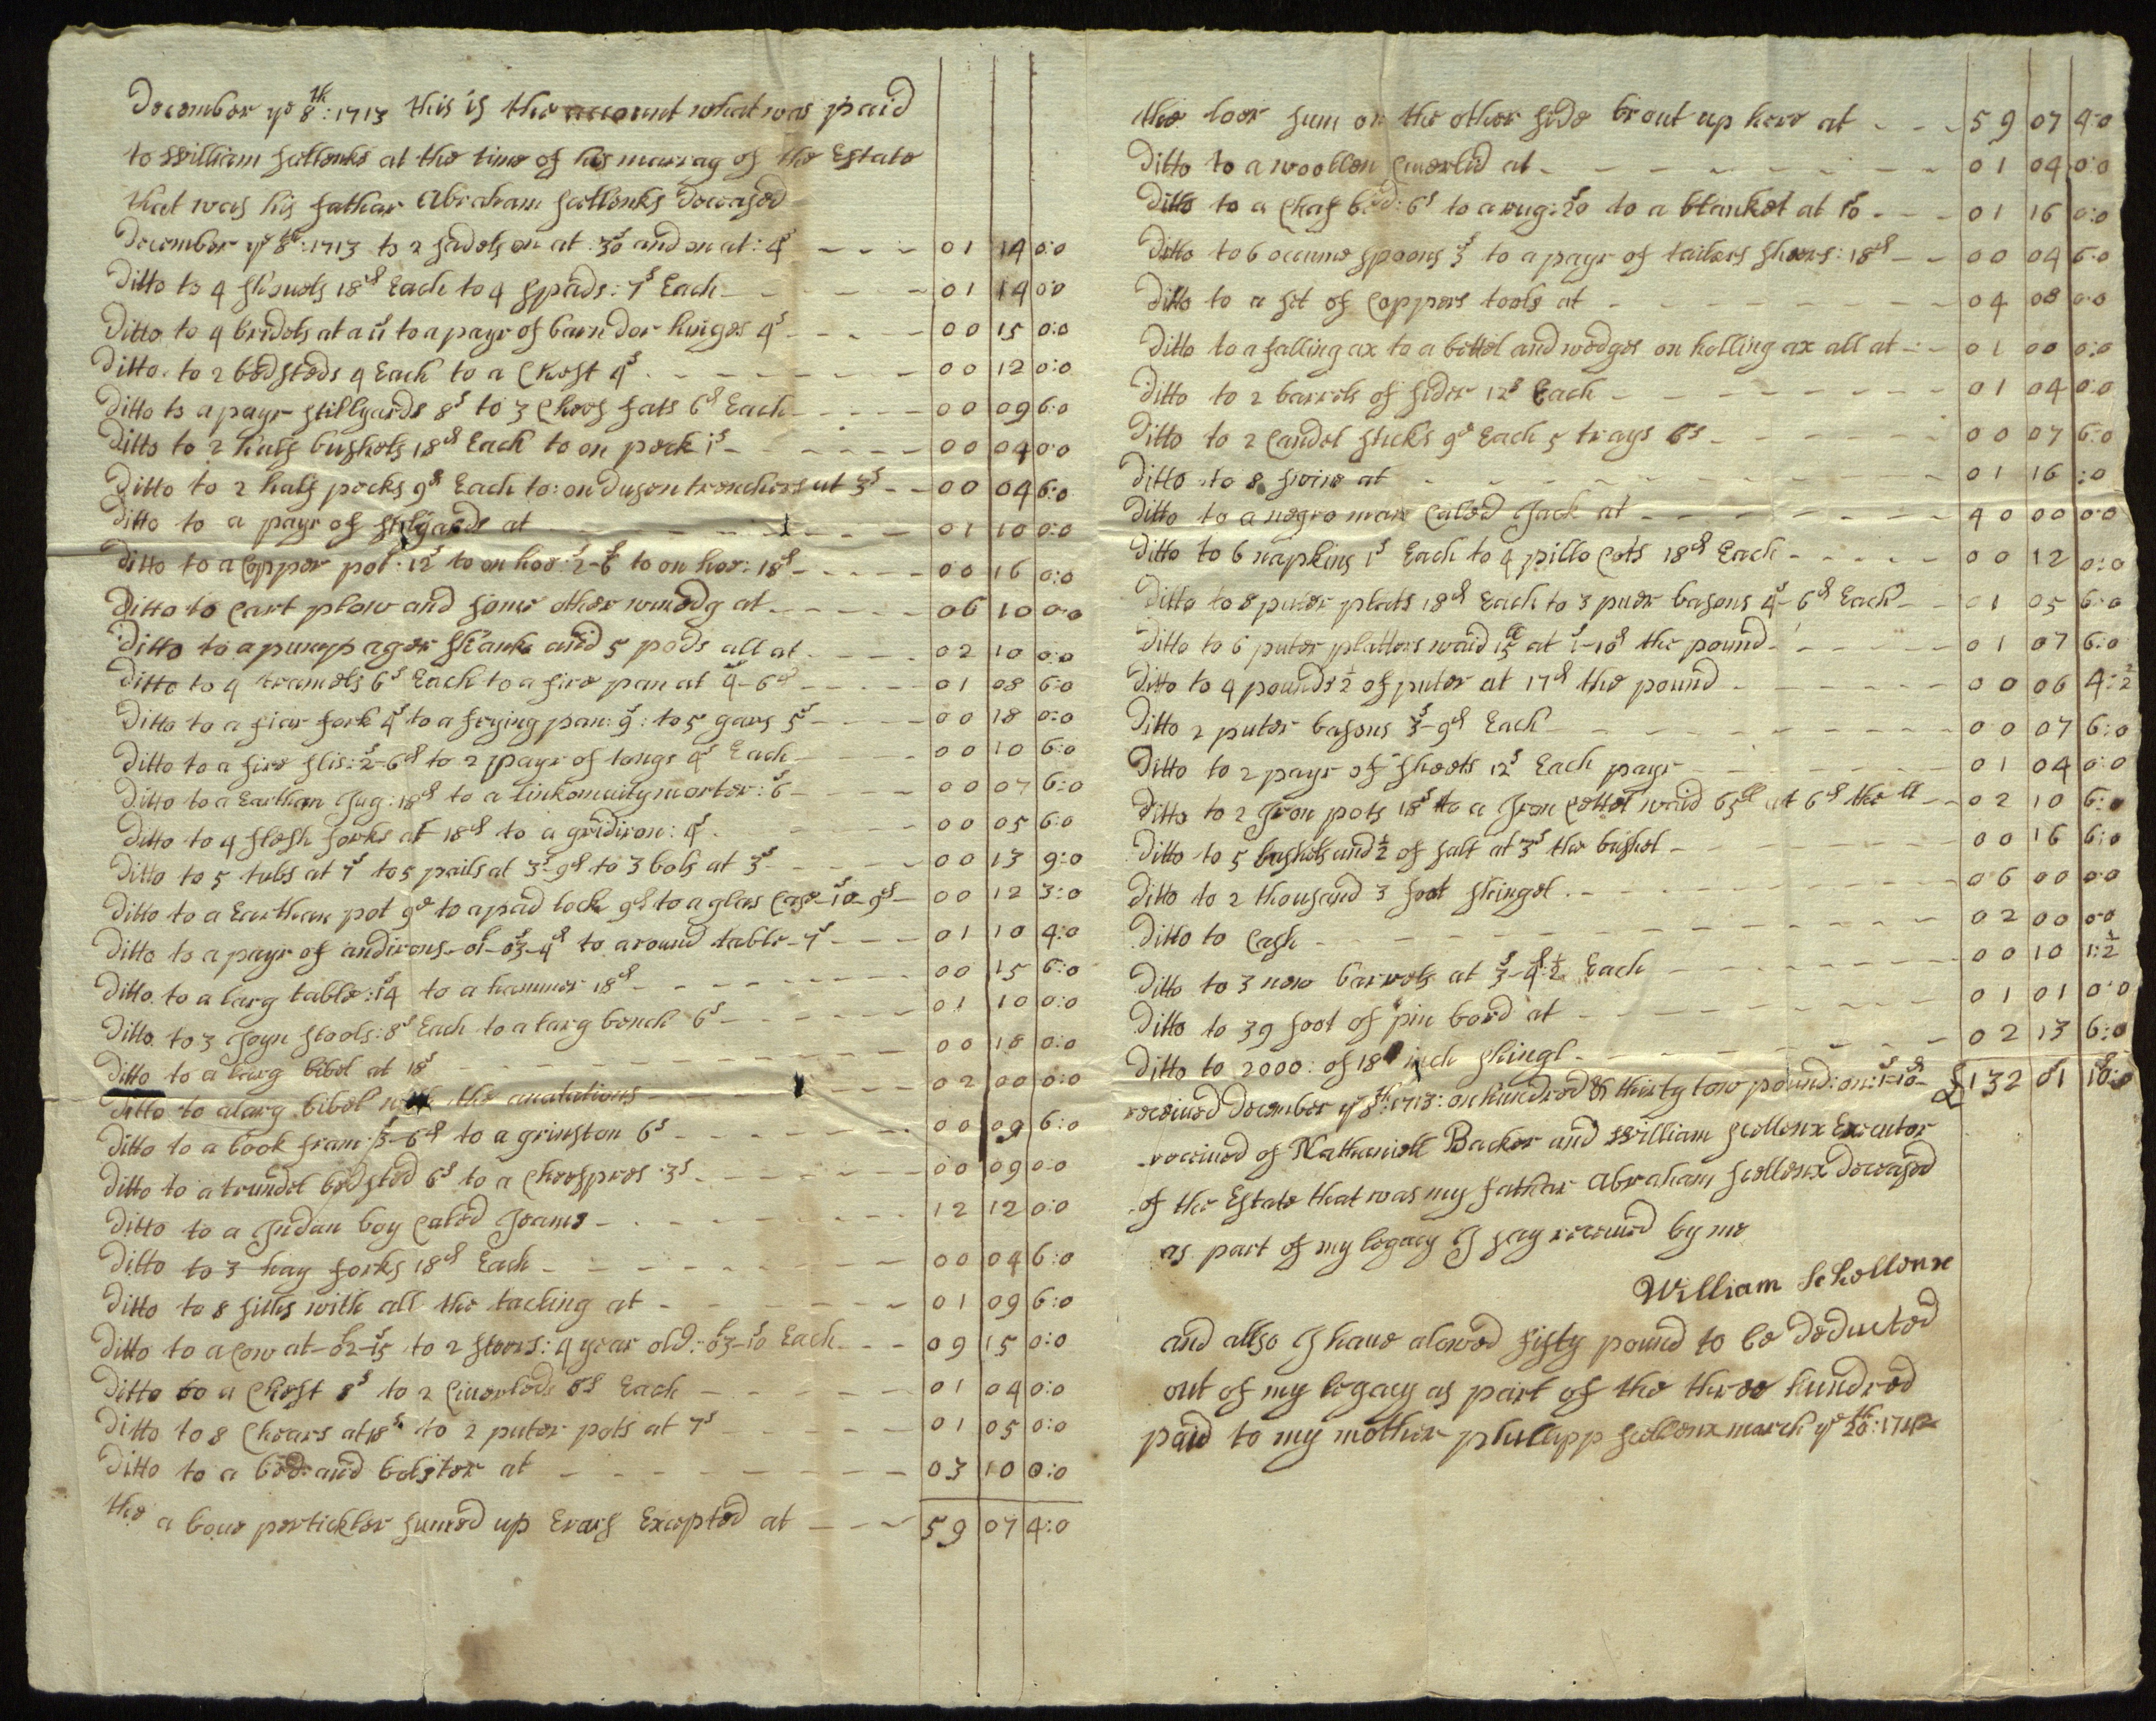 December ye 8th: 1713 this is the account what was paid
to William scellenks at the time of his marrag of the Estate
that was his fathar Abraham scellenks Deceased
December ye 8th: 1713 to 2 sadels on at: 30s and on at: 4s - - - 01 14 0:0
Ditto to 4 shouels 18d Each to 4 spads: 7s Each - - - 01 14 0:0
Ditto to 4 bridels at a 11s to a payr of barn dor hinges 4s - - - 00 15 0:0
Ditto to 2 bedsteds 4 Each to a Chest 4s - - - 00 12 0:0
Ditto to a payr stillyards 8s to 3 Chees fats 6d Each - - - 00 09 6:0
Ditto to 2 half bushels 18d Each to on peck 1s - - - 00 04 0:0
Ditto to 2 half pecks 9d Each to: on dusen trenchers at 3s - - 00 04 6:0
Ditto to a payr of stilyards at - - - 01 10 0:0
Ditto to a Copper pot: 12s to on hoe: 2s-6d to on hoe: 18d - - - 00 16 0:0
Ditto to Cart plow and some other at - - - 06 10 0:0
Ditto to a pump ager shank and 5 pods all at - - - 02 10 0:0
Ditto to 4 tramels 6s Each to a fire pan at 4s-6d - - - 01 08 6:0
Ditto to a fiar fork 4s to a frying pan: 9s: to 5 5s - - - 00 18 0:0
Ditto to a fire slis: 2s-6d to 2 payr of tongs 4s Each - - - 00 10 6:0
Ditto to a Earthan Jug: 18d to a morter: 6s - - - 00 07 6:0
Ditto to 4 flesh forks at 18d to a gridiron: 4s - - - 00 05 6:0
Ditto to 5 tubs at 7s to 5 pails at 3s-9d to 3 bols at 3s - - - 00 13 9:0
Ditto to a Earthan pot 9d to a pad lock 9d to a glas Case 10s-9d - 00 12 3:0
Ditto to a payr of andirons - 01-03s-4d to a round table - 7s - - - 01 10 4:0
Ditto to a larg table: 14s to a hammer 18d - - - 00 15 6:0
Ditto to 3 Joyn stools: 8s Each to a larg bench 6s - - - 01 10 0:0
Ditto to a larg bibel at 18s - - - 00 18 0:0
Ditto to a larg bibel with the anatations - - - 02 00 0:0
Ditto to a book fram: 3s-6d to a grinston 6s - - - 00 09 6:0
Ditto to a trundel bedsted 6s to a Cheespres 3s - - - 00 09 0:0
Ditto to a Indan boy Caled Jeams - - - 12 12 0:0
Ditto to 3 hay forks 18d Each - - - 00 04 6:0
Ditto to 8 siths with all the tacling at - - - 01 09 6:0
Ditto to a Cow at - 02-15s to 2 steers: 4 year old: 03-10s Each - - - 09 15 0:0
Ditto to a Chest 8s to 2 Couerleds 8s Each - - - 01 04 0:0
Ditto to 8 Chears at 18s to 2 puter pots at 7s - - - 01 05 0:0
Ditto to a bed and bolster at - - - 03 10 0:0
the a boue pertickler sumed up Erars Excepted at - - - 59 07 4:0
the toor sum on the other side brout up here at - - - 59 07 4:0
Ditto to a woollen Couerlid at - - - 01 04 0:0
Ditto to a Chaf bed: 6s to a rug: 20s to a blanket at 10s - - - 01 16 0:0
Ditto to 6 occume spoons 3s to a payr of tailers shears: 18d - - 00 04 6:0
Ditto to a set of Coppers tools at - - - 04 08 0:0
Ditto to a falling ax to a bettel and wedges on holling ax all at - - 01 00 0:0
Ditto to 2 barrels of sider 12s Each - - - 01 04 0:0
Ditto to 2 Candel sticks 9d Each 5 trays 6s - - - 00 07 6:0
Ditto to 8 swine at - - - 01 16 :0
Ditto to a negro man Caled Jack at - - - 40 00 0:0
Ditto to 6 napkins 1s Each to 4 pillo Cots 18d Each - - - 00 12 0:0
Ditto to 8 puter plats 18d Each to 3 puer basons 4s-6d Each - - 01 05 6:0
Ditto to 6 puter platters waid 15ll at 1s-10d the pound - - - 01 07 6:0
Ditto to 4 pounds 1/2 of puter at 17d the pound - - - 00 06 4:1/2
Ditto 2 puter basons 3s-9d Each - - - 00 07 6:0
Ditto to 2 payr of sheets 12s Each payr - - - 01 04 0:0
Ditto to 2 Iron pots 18s to a Iron Cettel waid 65ll at 6d the ll - - 02 10 6:0
Ditto to 5 bushels and 1/2 of salt at 3s the bushel - - - 00 16 6:0
Ditto to 2 thousand 3 foot shingel - - - 06 00 0:0
Ditto to Cash - - - 02 00 0:0
Ditto to 3 new barrels at 3s-4d 1/2 Each - - - 00 10 1:1/2
Ditto to 39 foot of pin bord at - - - 01 01 0:0
Ditto to 2000: of 18 inch shingl - - - 02 13 6:0
receiued December ye 8th: 1713: on hundred & thirty tow pound: on: 1s-10d - £132 01 10:0
receiued of Nathaniell Backer and William scellenx Executor
of the Estate that was my fathar Abraham scellenx Deceased
as part of my legacy I say receiued by me
William Schellenx
and allso I haue alowed fifty pound to be Deducted
out of my legacy as part of the three hundred
paid to my mother phillipp scellenx march ye 20th: